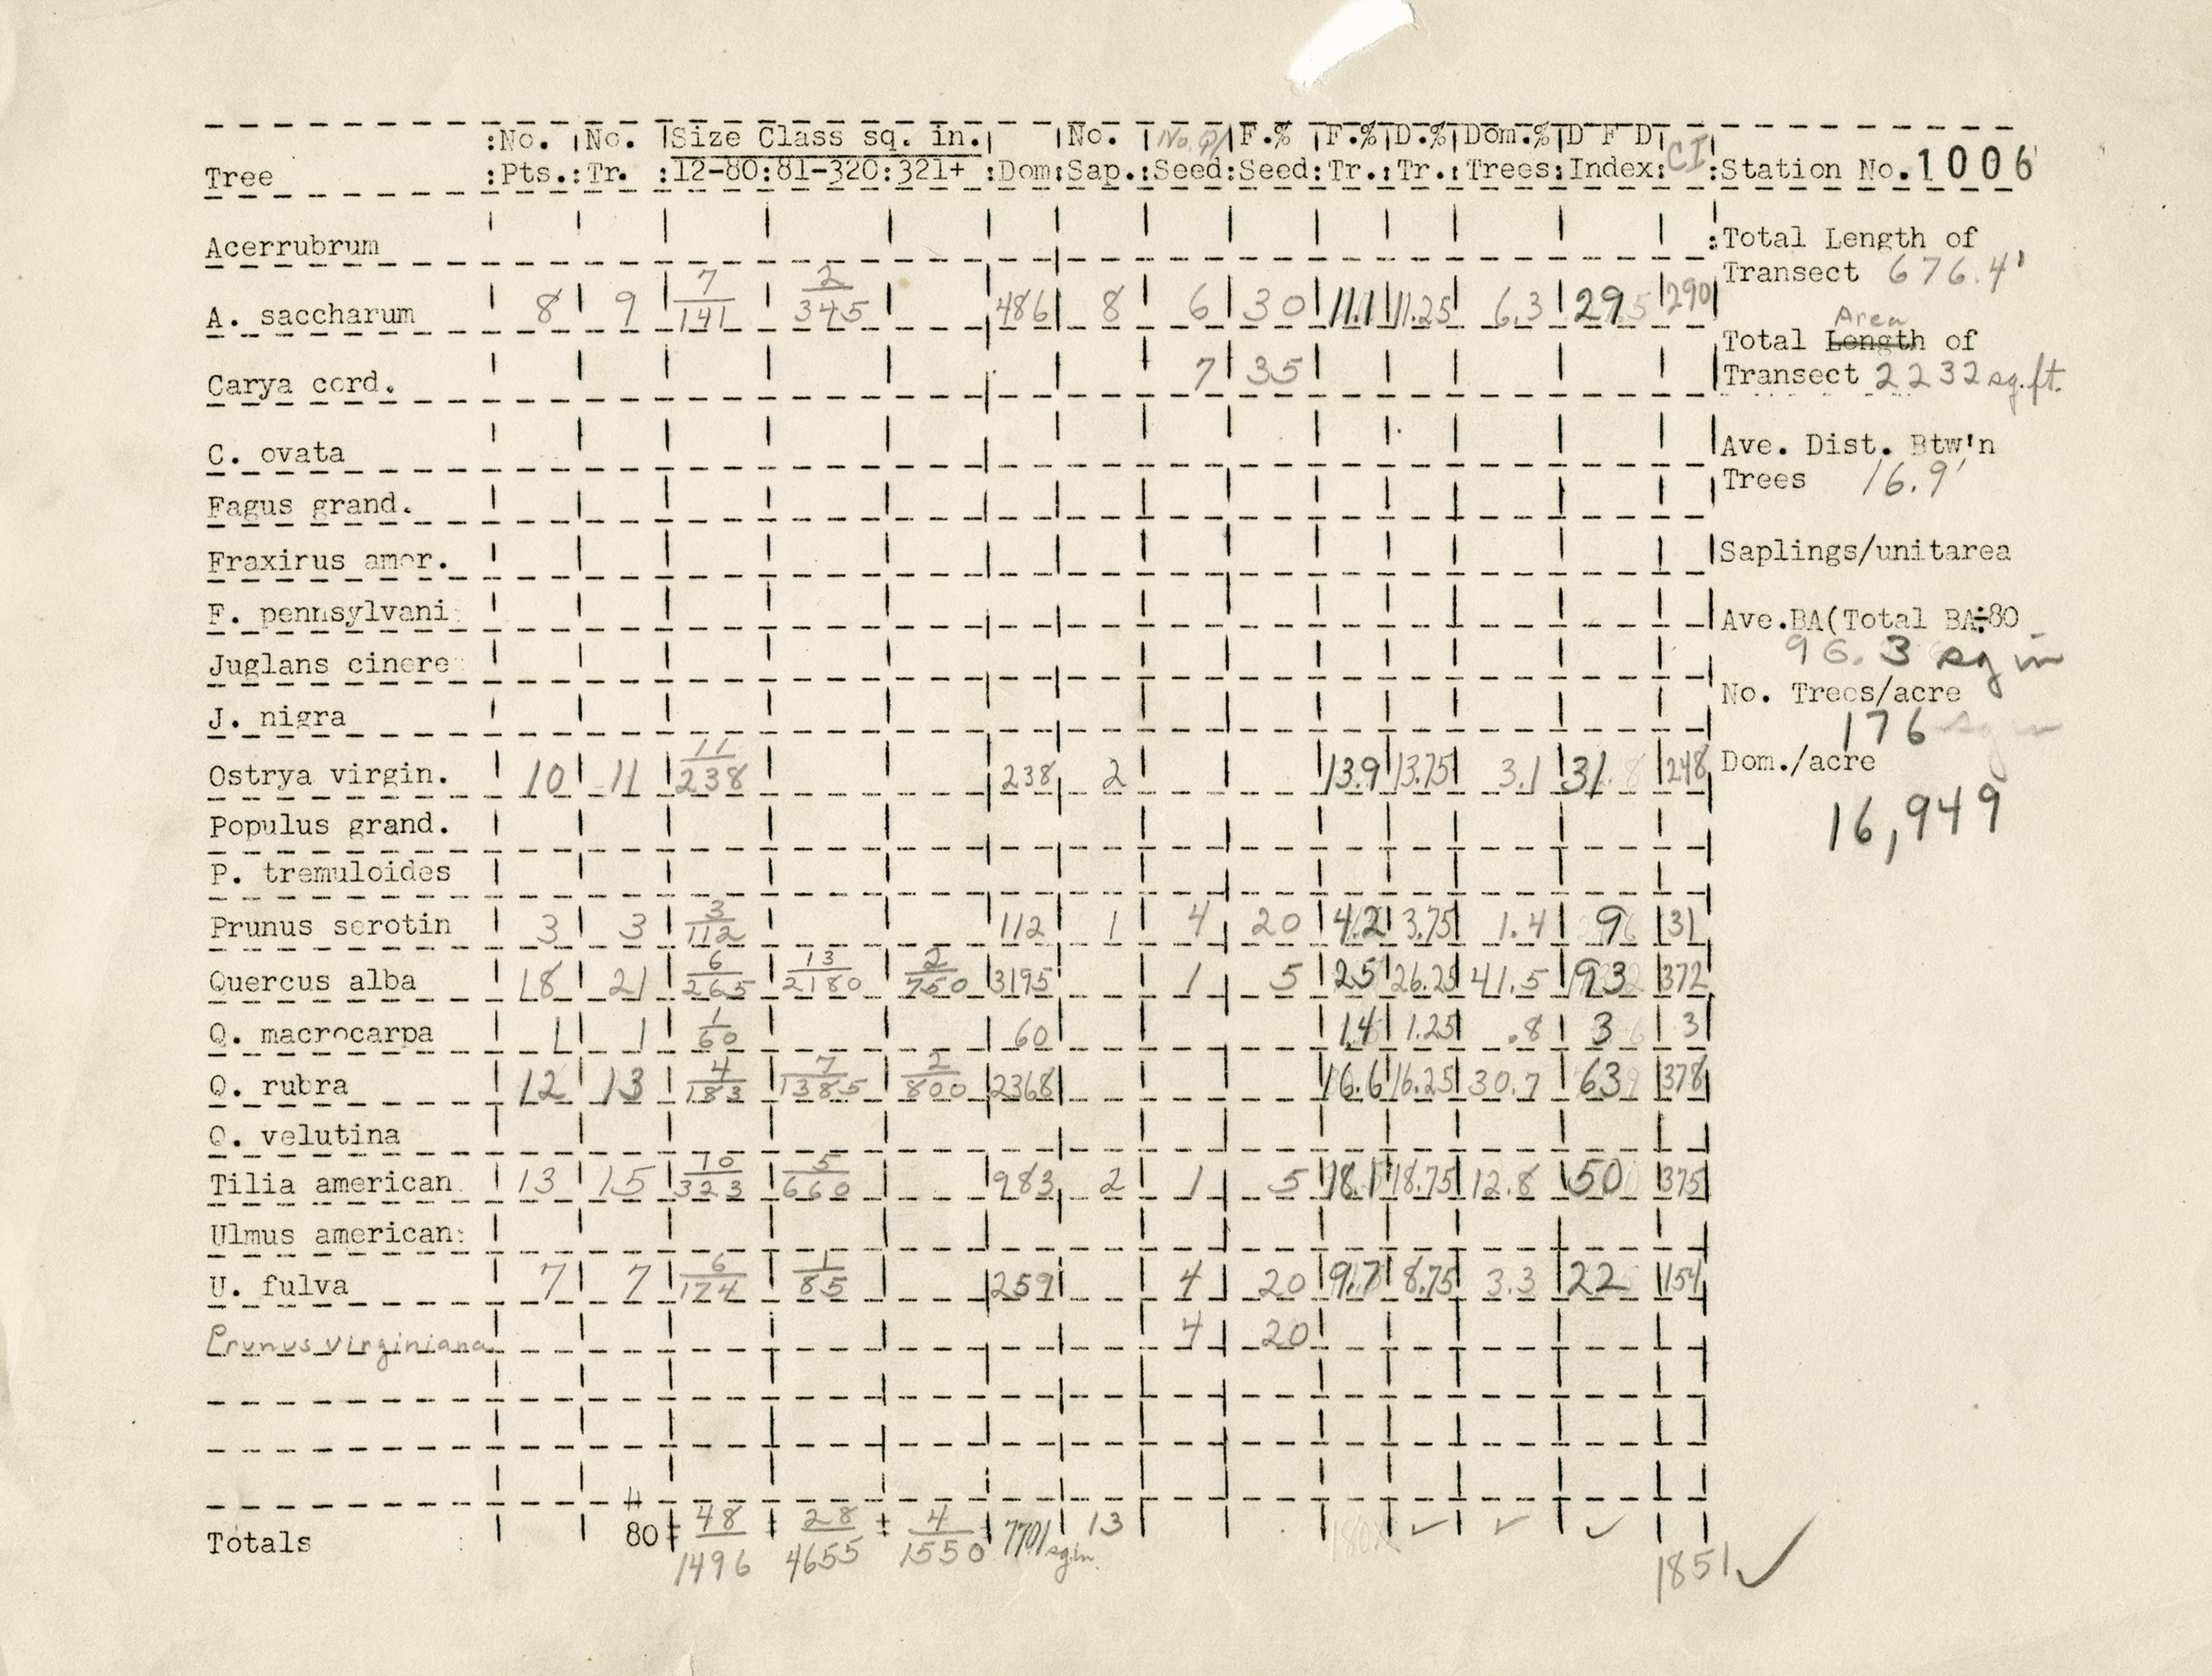 Tree :No. Pts. :No. Tr. Size Class sq. in. :12-80:81-320:321+ :Dom: No. Sap.: No. Q/ Seed: F.% Seed: F.% Tr.: D.% Tr.: Dom.% Trees: D F D Index: CI :Station No. 1006
Acerrubrum
:Total Length of
Transect 676.4'
A. saccharum 8 9 7/141 2/345 486 8 6 30 11.1 11.25 6.3 29 290
Total Length Area of
Carya cord. 7 35
Transect 2232 sq. ft.
C. ovata
Ave. Dist. Btw'n
Trees 16.9'
Fagus grand.
Fraxirus amer.
Saplings/unitarea
F. pennsylvani
Ave.BA(Total BA÷80
Juglans cinere
96.3 sq in
J. nigra
No. Trees/acre
176
Ostrya virgin. 10 11 11/238 238 2 13.9 13.75 3.1 31 248
Dom./acre
16,949
Populus grand.
P. tremuloides
Prunus serotin 3 3 3/112 112 1 4 20 4.2 3.75 1.4 9 31
Quercus alba 18 21 6/265 13/2180 2/750 3195 1 5 25 26.25 41.5 93 372
Q. macrocarpa 1 1 1/60 60 1.4 1.25 .8 3 3
Q. rubra 12 13 4/183 7/1385 2/800 2368 16.6 16.25 30.7 63 378
Q. velutina
Tilia american 13 15 10/323 5/660 983 2 1 5 18.1 18.75 12.8 50 375
Ulmus american:
U. fulva 7 7 6/174 1/85 259 4 20 9.7 8.75 3.3 22 154
Prunus virginiana 4 20
Totals 80 48/1496 28/4655 4/1550 7701 sq in. 13 ✓ ✓ ✓ 1851 ✓